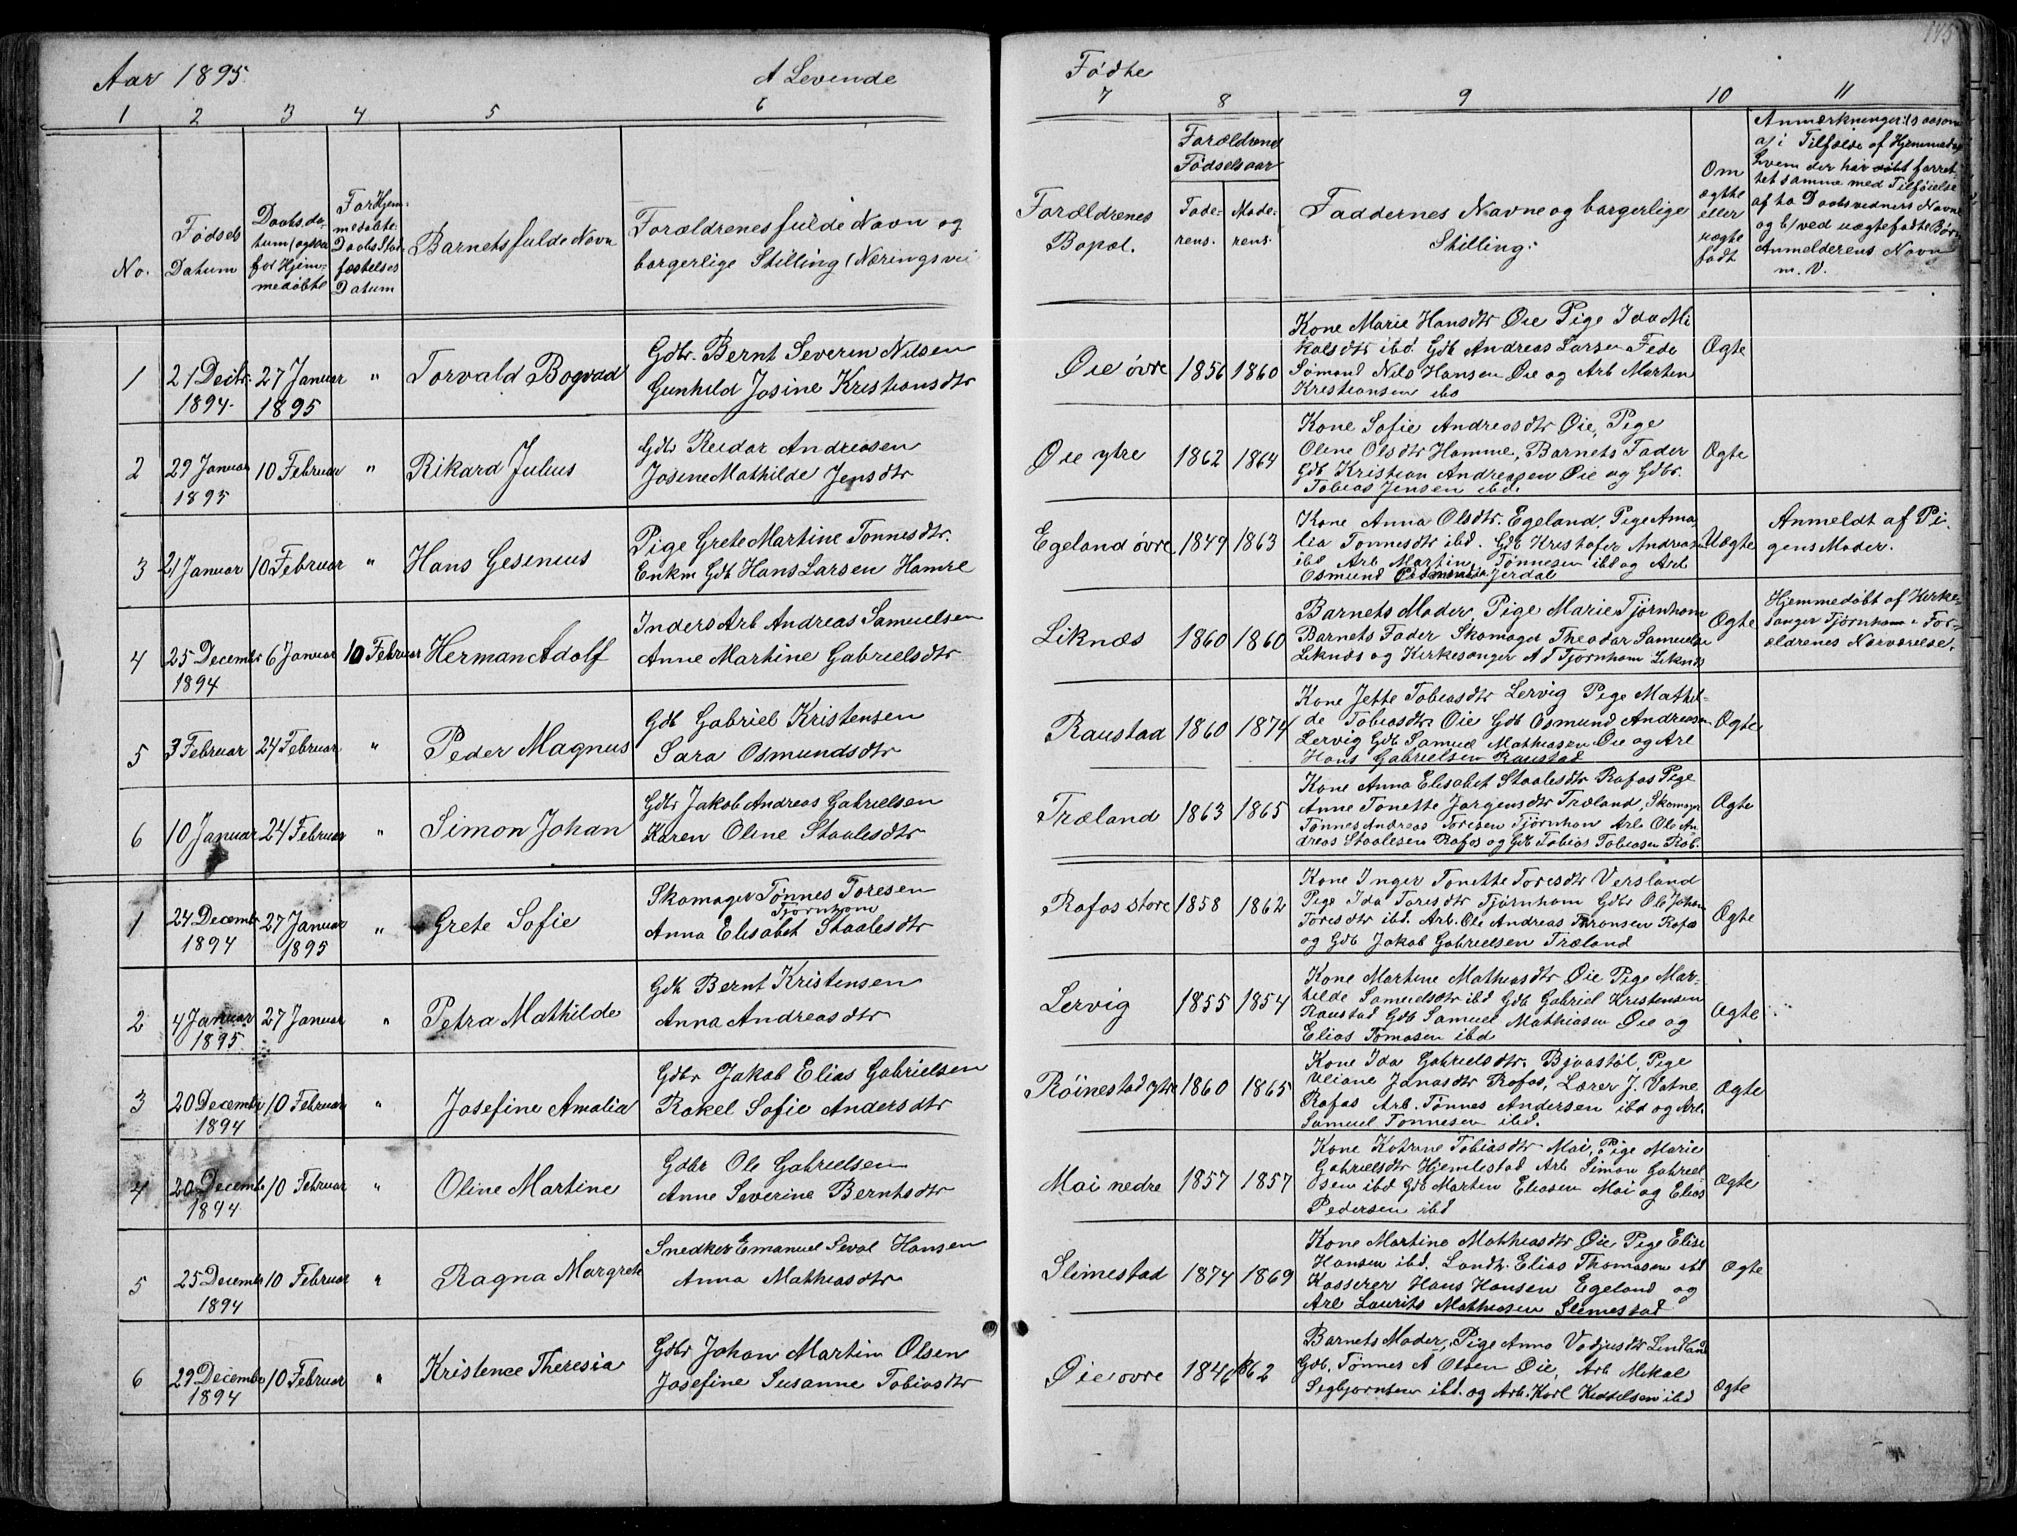 145
Aar 1895.
A Levende
Fødte
1 2 3 4 5 6
7 8 9 10 11
No.
Fødsels
Datum
Daabsda-
tum (ogsaa
for Hjem-
medøbte
For Hjem-
medøbte
Daabs Stad-
fæstelses
Datum
Barnets fulde Navn
Forældrenes fulde Navn og
borgerlige Stilling (Næringsvei
Forældrenes
Bopæl.
Forældrenes
Fødselsaar
Fade-
rens.
Mode-
rens.
Faddernes Navne og borgerlige
Stilling.
Om
ægte
eller
uægte
født
Anmærkninger: (saasom
a) i Tilfælde af Hjemmedaab
hvem der har døbt forret-
tet samme med Tilføielse
af to Daabsvidners Navne
og b) ved uægtefødte Børn
Anmelderens Navn
m. V.
1
21 Decbr.
1894.
27 Januar
1895
"
Torvald Bogvad
Gdbr. Bernt Severin Nilsen
Gunhild Josine Kristiansdtr
Øie øvre
1856
1860
Kone Marie Hansdtr Øie Pige Ida Mi
kalsdtr ibd. Gdb Andreas Larsen Fede
Sømand Nils Hansen Øie og Arb Marten
Kristiansen ibd
Ægte
2
29 Januar
1895
10 Februar
"
Rikard Julius
Gdbr Reidar Andreasen
Josine Mathilde Jensdtr
Øie ytre
1862
1864
Kone Sofie Andreasdtr Øie, Pige
Oline Olsdtr Hamme, Barnets Fader
Gdb Kristian Andreasen Øie og Gdbr.
Tobias Jensen ibd.
Ægte
3
21 Januar
10 Februar
"
Hans Gesenius
Pige Grete Martine Tønnesdtr.
Enkm Gdb Hans Larsen Hamre
Egeland øvre
1849
1863
Kone Anna Olsdtr. Egeland, Pige Ama
lia Tønnesdtr ibd. Gdb Kristofer Andreasen
ibd Arb Martin Tønnesen ibd og Arb
Osmund Jerdal
Uægte
Anmeldt af Pi-
gens Moder.
4
25 Decembr
1894
6 Januar
10 Februar
Herman Adolf
Inders Arb Andreas Samuelsen
Anne Martine Gabrielsdtr
Liknæs
1860
1860
Barnets Moder, Pige Marie Tjørnhom
Barnets Fader Skomager Theodor Samuelsen
Liknæs og Kirkesanger A J Tjørnhom Liknæs
Ægte
Hjemmedøbt af Kirke-
sanger Tjørnhom i For-
ældrenes Nærværelse.
5
3 Februar
24 Februar
"
Peder Magnus
Gdb Gabriel Kristensen
Sara Osmundsdtr
Raustad
1860
1874
Kone Jette Tobiasdtr Lervig Pige Mathil-
de Tobiasdtr Øie Gdb Osmund Andreasen
Lervig Gdb Samuel Mathiasen Øie og Arb
Hans Gabrielsen Raustad
Ægte
6
10 Januar
24 Februar
"
Simon Johan
Gdbr Jakob Andreas Gabrielsen
Karen Oline Staalesdtr
Træland
1863
1865
Kone Anna Elisabet Staalesdtr Rafos Pige
Anne Tonette Jørgensdtr Træland, Skomager
Tønnes Andreas Toresen Tjørnhom Arb Ole An
dreas Staalesen Rafos og Gdb Tobias Tobiasen
Ægte
1
24 Decembr
1894
27 Januar
1895
"
Grete Sofie
Skomager Tønnes Toresen
Tjørnhom
Anna Elisabet Staalesdtr
Rafos store
1858
1862
Kone Inger Tonette Toresdtr Versland
Pige Ida Toresdtr Tjørnhom Gdbr Ole Johan
Toresdtr ibd. Arb. Ole Andreas Aronsen Rafos
og Gdb Jakob Gabrielsen Træland
Ægte
2
4 Januar
1895.
27 Januar
"
Petra Mathilde
Gdb Bernt Kristensen
Anna Andreasdtr
Lervig
1855
1854
Kone Martine Mathiasdtr Øie Pige Mat-
hilde Samuelsdtr ibd Gdb Gabriel Kristensen
Raustad Gdb Samuel Mathiasen Øie og
Elias Tomasen ibd
Ægte
3
20 Decembr
1894
10 Februar
"
Josefine Amalia
Gdbr Jakob Elias Gabrielsen
Rakel Sofie Andersdtr
Røinestad ytre
1860
1865
Kone Ida Gabrielsdtr. Bjvastøl, Pige
Vliane Jonasdtr Rafos, Lærer J. Vatne
Rafos Arb. Tønnes Andersen ibd og Arb.
Samuel Tønnesen ibd.
Ægte
4
20 Decembr
1894
10 Februar
"
Oline Martine
Gdbr Ole Gabrielsen
Anne Severine Berntsdtr
Moi nedre
1857
1857
Kone Katrine Tobiasdtr Moi, Pige Marie
Gabrielsdtr Hjemlestad Arb Simon Gabriel-
sen ibd Gdb Marten Eliasen Moi og Elias
Pedersen ibd
Ægte
5
25 Decembr
1894
10 Februar
"
Ragna Margrete
Snedker Emanuel Seval Hansen
Anna Mathiasdtr
Slimestad
1874
1869
Kone Martine Mathiasdtr Øie Pige Elise
Hansen ibd. Landh. Elias Thomasen ibd
Kasserer Hans Hansen Egeland og
Arb Laurits Mathiasen Slimestad
Ægte
6
29 Decembr
1894
10 Februar
"
Kristence Theresia
Gdbr Johan Martin Olsen
Josefine Susanne Tobiasdtr
Øie øvre
1846
1862
Barnets Moder, Pige Anna Vodjusdtr Lindland
Gdb. Tønnes A Olsen Øie, Arb Mikal
Sigbjørnsen ibd. og Arb. Karl Kittelsen ibd
Ægte